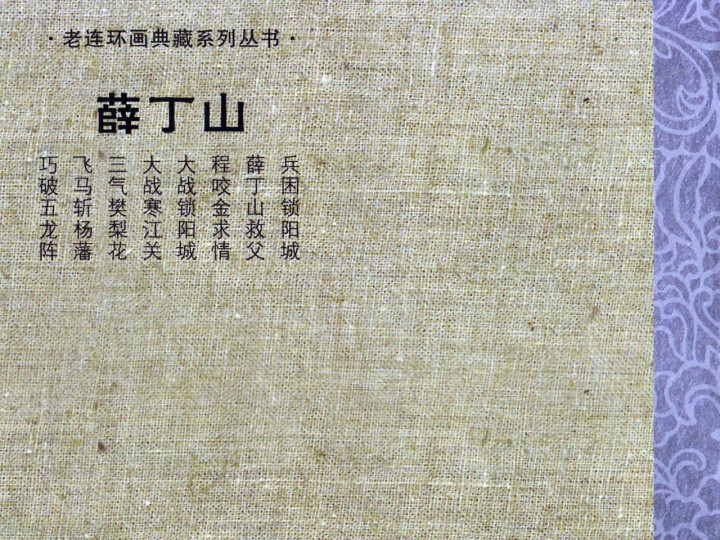 ·老连环画典藏系列丛书·
薛丁山
兵困锁阳城
薛丁山救父
程咬金求情
大战锁阳城
大战寒江关
三气樊梨花
飞马斩杨藩
巧破五龙阵